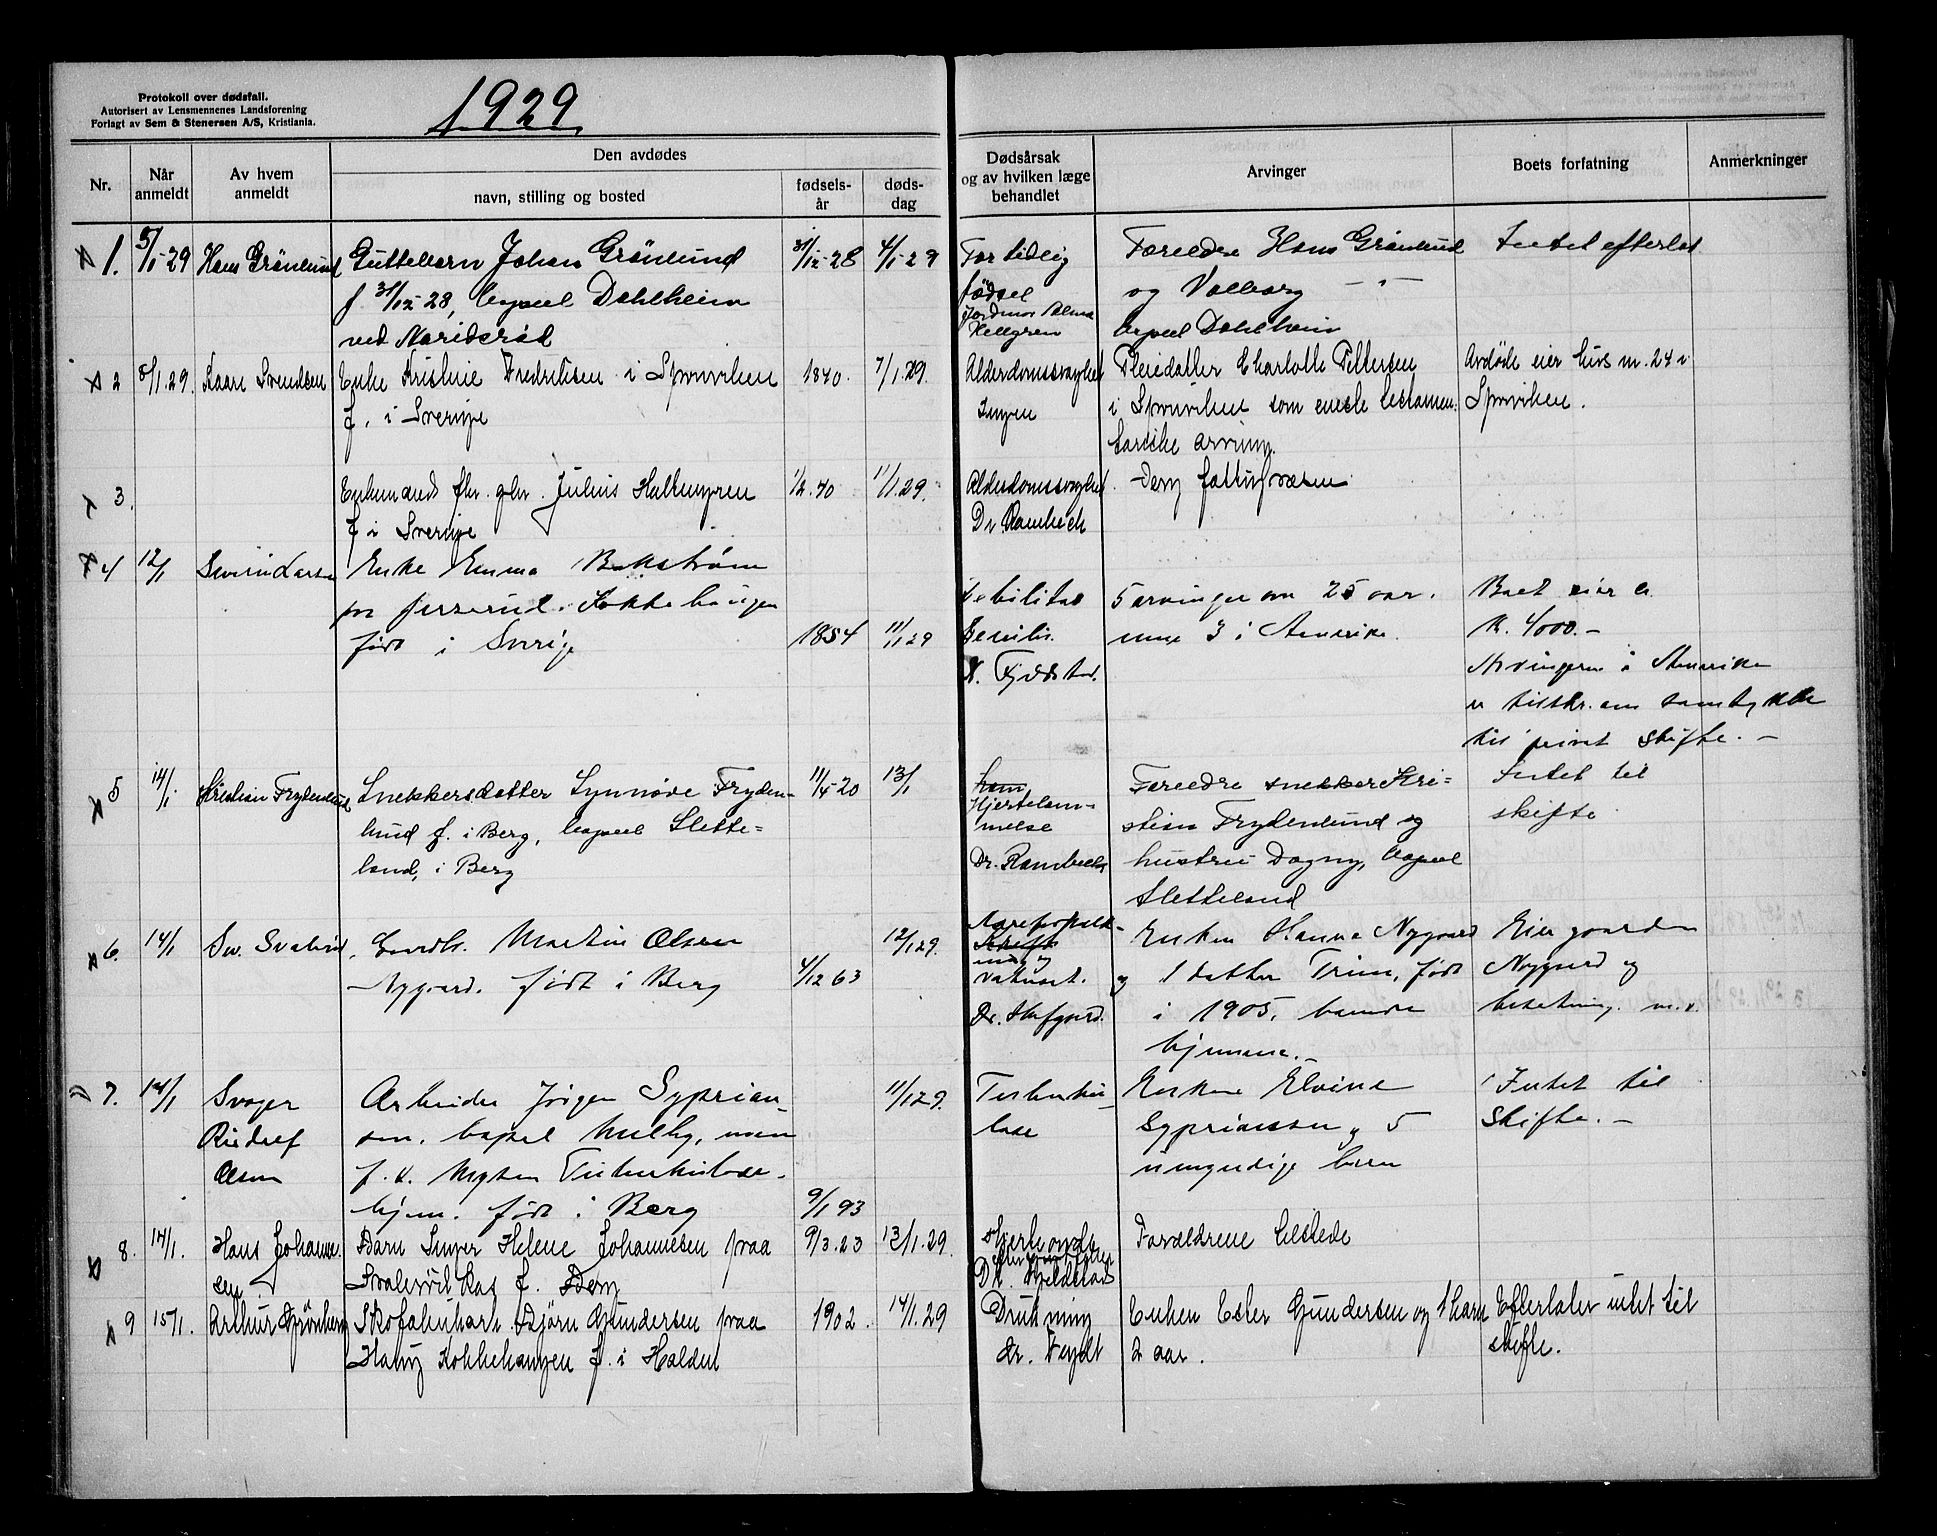 Protokoll over dødsfall.
Autorisert av Lensmennenes Landsforening
Forlagt av Sem & Stenersen A/S, Kristiania.
1929
Nr.
Når anmeldt
Av hvem anmeldt
Den avdødes
navn, stilling og bosted
fødsels-år
døds-dag
Dødsårsak og av hvilken læge behandlet
Arvinger
Boets forfatning
Anmerkninger
1. 5/1-29 Hans Grönlund
Guttebarn Johan Grönlund
f 31/12-28, bopael Dahlheim
ved
31/12-28 4/1-29
For tidlig
födsel
Jordmor Alma
Hellgren
Foreldre Hans Grönlund
og Valborg — " —
bopael Dahlheim
Intet efterlat
2 8/1.29. Kaare Svendsen
Enke Kristine Fredriksen i Sponviken
f. i Sverige
1840. 7/1.29.
Alderdomssvaghet
Ingen
Pleiedatter Charlotte Pettersen
i Sponviken som eneste testamen-
tariske arving.
Avdöde eier hus nr. 24 i
Sponviken.
3.
Enkemand fhr. gbr. Julius Hultengren
f i Sverige
1/2.40 11/1.29.
Alderdomssvaghet.
Dr Rambech
Berg fattigvæsen
4 12/1 Severin Larsen
Enke Emma Bakström
født i Sverige
1854 11/1 29
Debilitas
senilis.
Fjeldstad.
5 arvinger over 25 aar.
3 i Amerika.
Boet eier ca.
K. 4000.-
Arvingerne i Amerika
er tilskr. om samtykke
til privat skifte. -
5 14/1 Kristian Frydenlund
Snekkersdatter Synnöve Fryden-
lund f. i Berg, bopael Slette-
land, i Berg
11/4-20 13/1
Hjertelam-
melse
Dr. Rambech
Foreldre snekker Kri-
stian Frydenlund og
hustru Dagny, bopael
Sletteland
Intet til
skifte
6. 14/1 Sv. Svalerød
Gaardbr. Martin Olsen
Nygaard. født i Berg
4/12 63 12/1 29.
og
Dr. Hofgaard.
Enken Hanna Nygaard
og 1 datter født
i 1905, begge
hjemme. -
Eier gaarden
Nygaard og
besetning. m.v.
7. 14/1 Svoger
Rudolf
Olsen
Arbeider Jörgen Syprian-
sen, bopael
Tuberkulose-
hjem. født i Berg
9/1 93 11/1 29.
Tuberku-
lose
Enken Elvine
Sypriansen og 5
umyndige barn
Intet til
Skifte. -
8. 14/1. Hans Johanne-
sen.
Barn Inger Helene Johannesen paa
Svalerödkas f. Berg
9/3.23 13/1.29.
Dr. Fjeldstad
Forældrene tilstede
9 15/1. Arthur Grönberg
Skofabrikarb. Björn Gundersen paa
Haug Kokkehaugen f. i Halden
1902. 14/1.29
Drukning
dr. Feydt
Enken Ester Gundersen og 1 barn
2 aar.
Efterlater intet til
skifte.